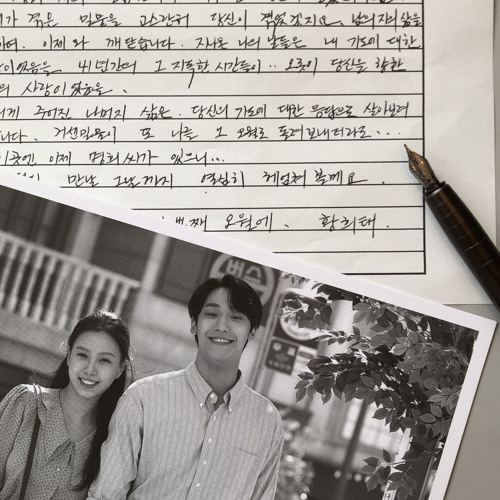 가 겪은 밀물을 고스란히 당신이 겪었겠지요. 남겨진 삶을
하며. 이제와 깨닫습니다. 지나온 나의 날들은 내 기도에 대한
이었음을. 41년간의 그 지독한 시간들이.. 오롯이 당신을 향한
의 사랑이었음을.
에게 주어진 나머지 삶은. 당신의 기도에 대한 응답으로 살아보려
합니다. 거센 밀물이 또 나를 그 오월로 돌려보내더라도...
이곳엔 이제 명희씨가 있으니...
만날 그날까지 열심히 헤엄쳐볼게요.
번째 오월에. 황희태.
버스